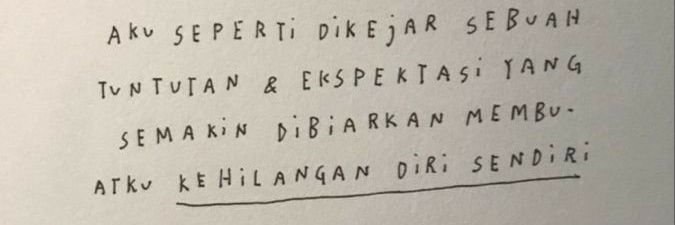 AKU SEPERTI DIKEJAR SEBUAH
TUNTUTAN & EKSPEKTASI YANG
SEMAKIN DIBIARKAN MEMBU-
ATKU KEHILANGAN DIRI SENDIRI